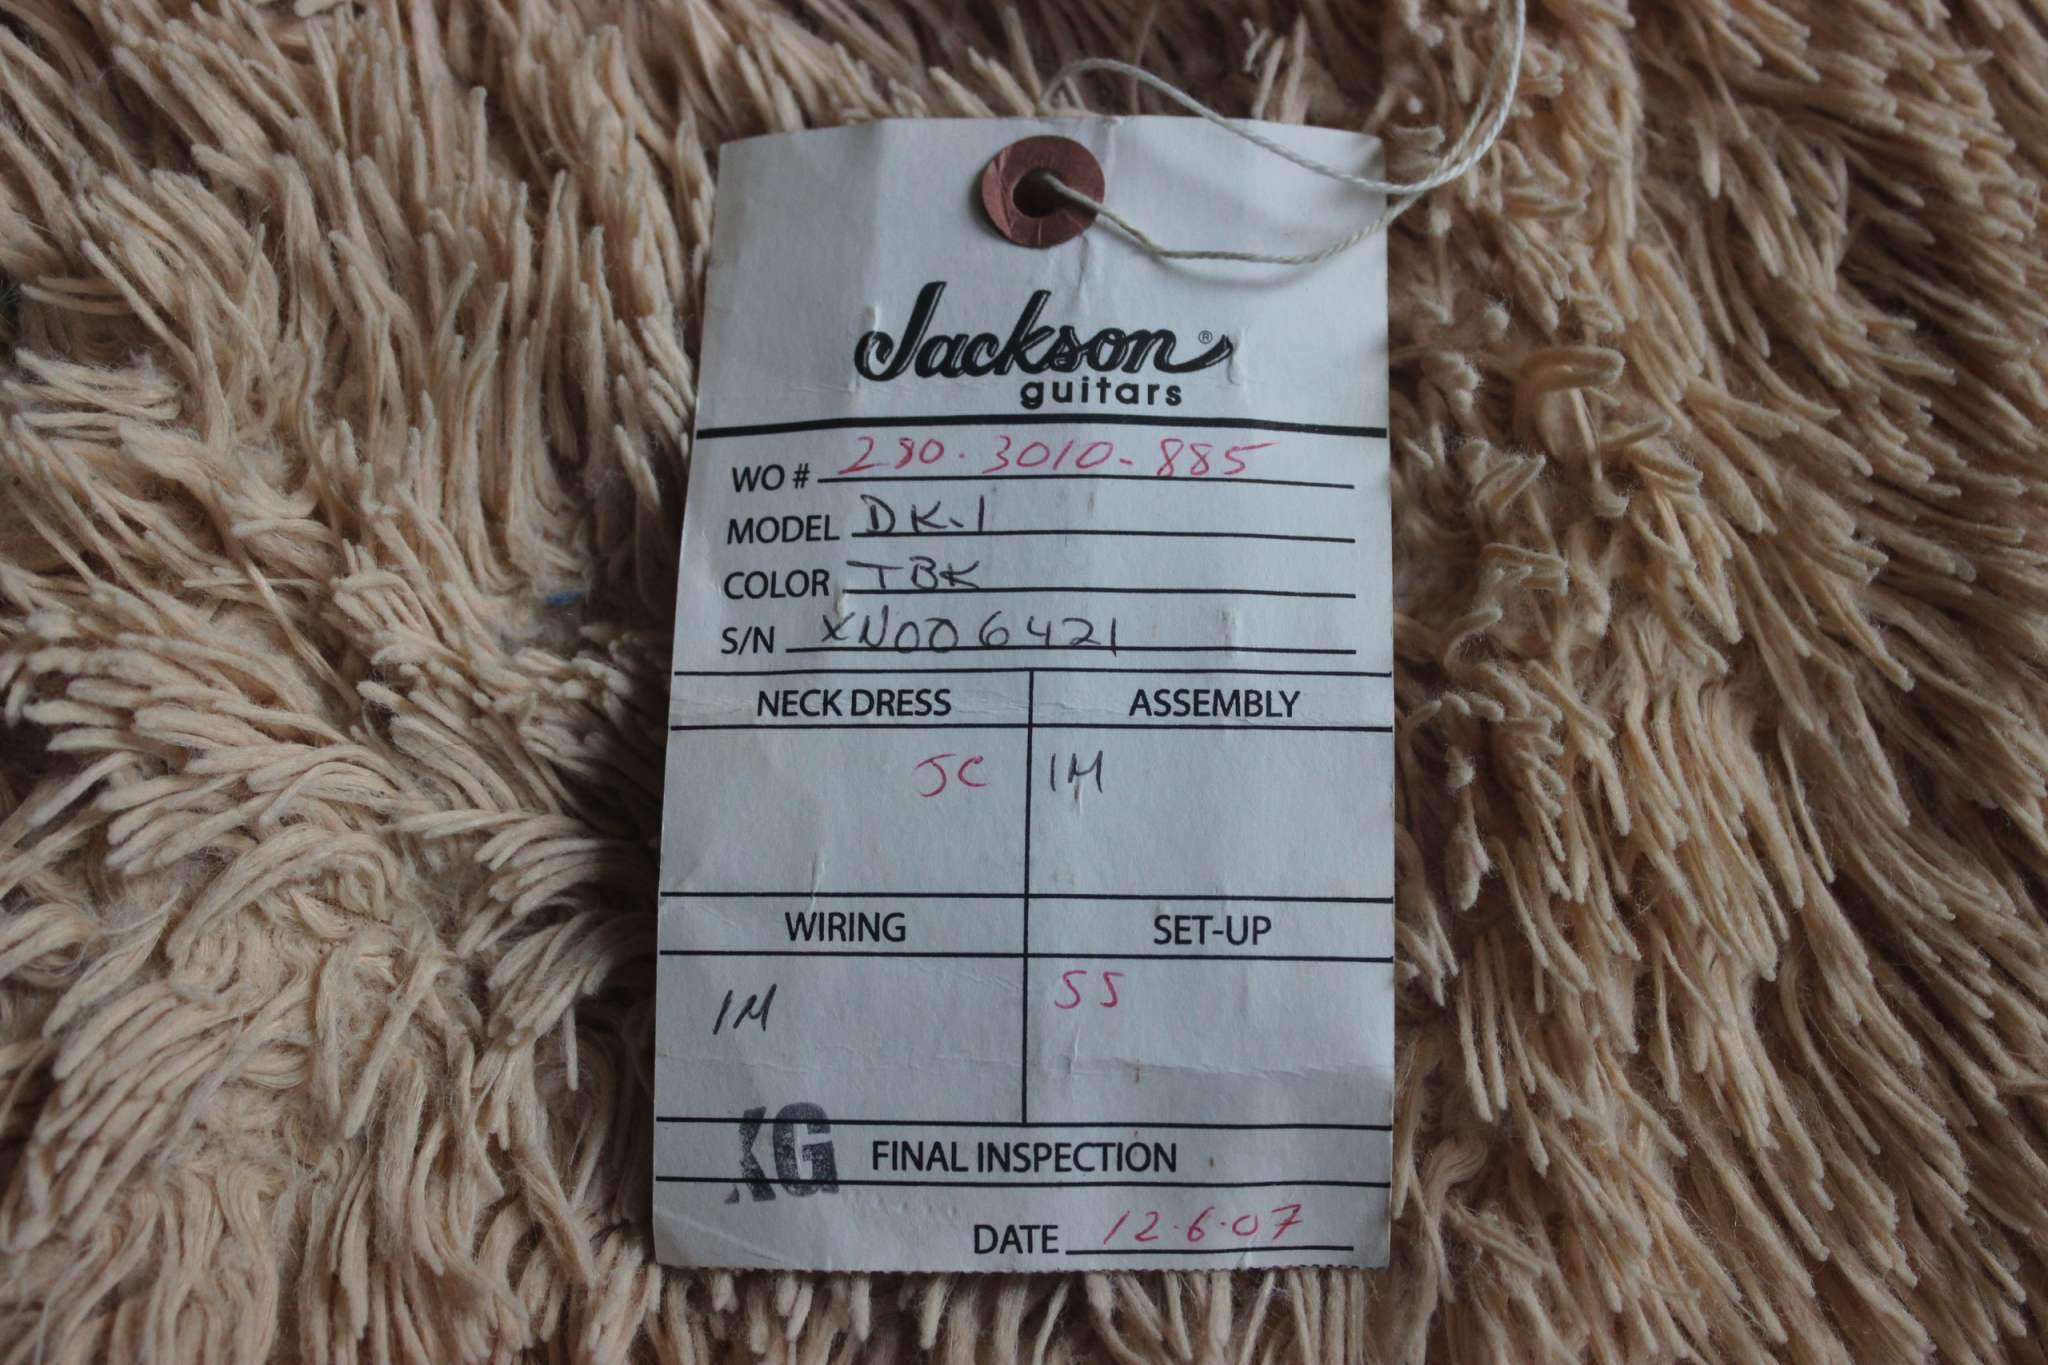 Jackson®
guitars
WO # 280-3010-885
MODEL DK-1
COLOR TBK
S/N XN006421
NECK DRESS ASSEMBLY
JC IM
WIRING SET-UP
IM SS
KG FINAL INSPECTION
DATE 12·6·07